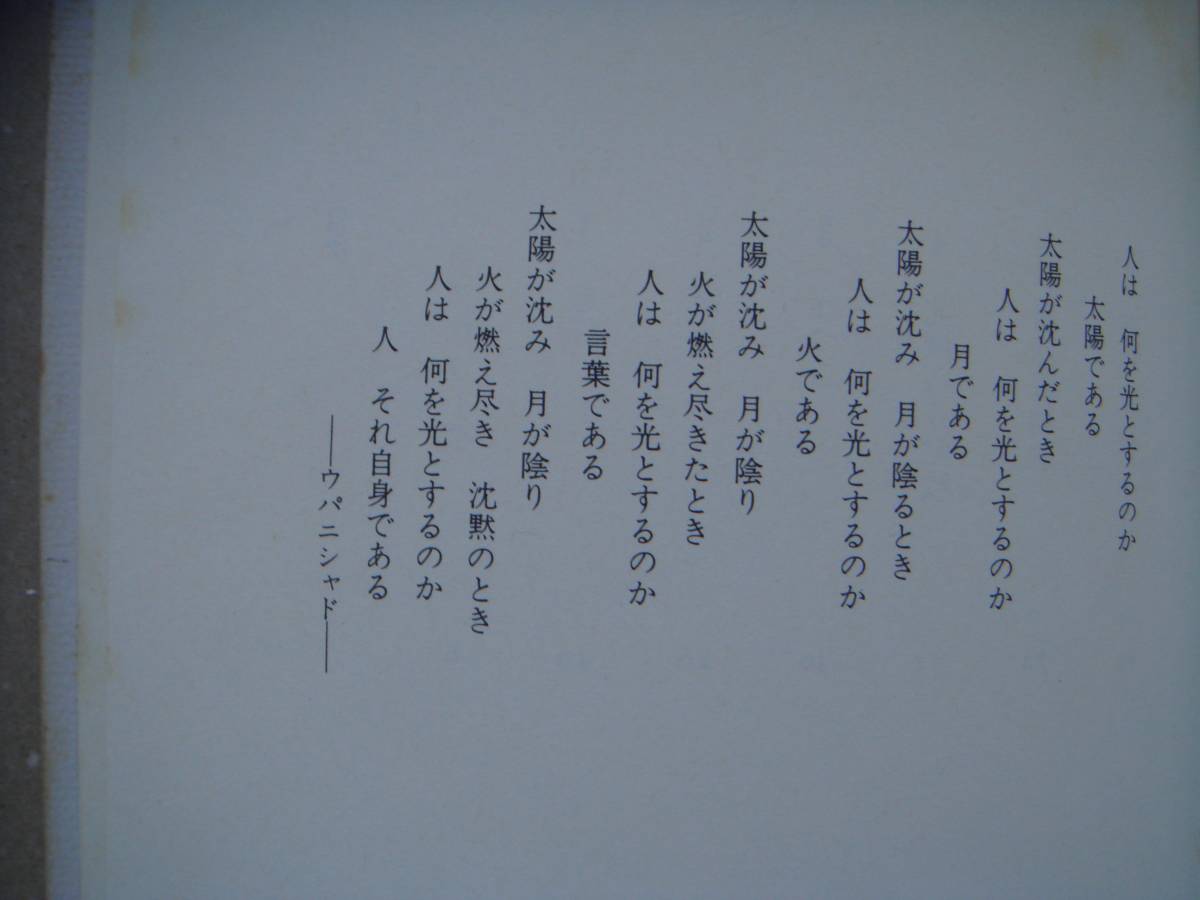 人は　何を光とするのか
太陽である
太陽が沈んだとき
人は　何を光とするのか
月である
太陽が沈み　月が陰るとき
人は　何を光とするのか
火である
太陽が沈み　月が陰り
火が燃え尽きたとき
人は　何を光とするのか
言葉である
太陽が沈み　月が陰り
火が燃え尽き　沈黙のとき
人は　何を光とするのか
人　それ自身である
——ウパニシャド——